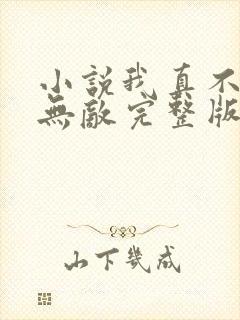 小說我真不
無敵完整版
山下幾成